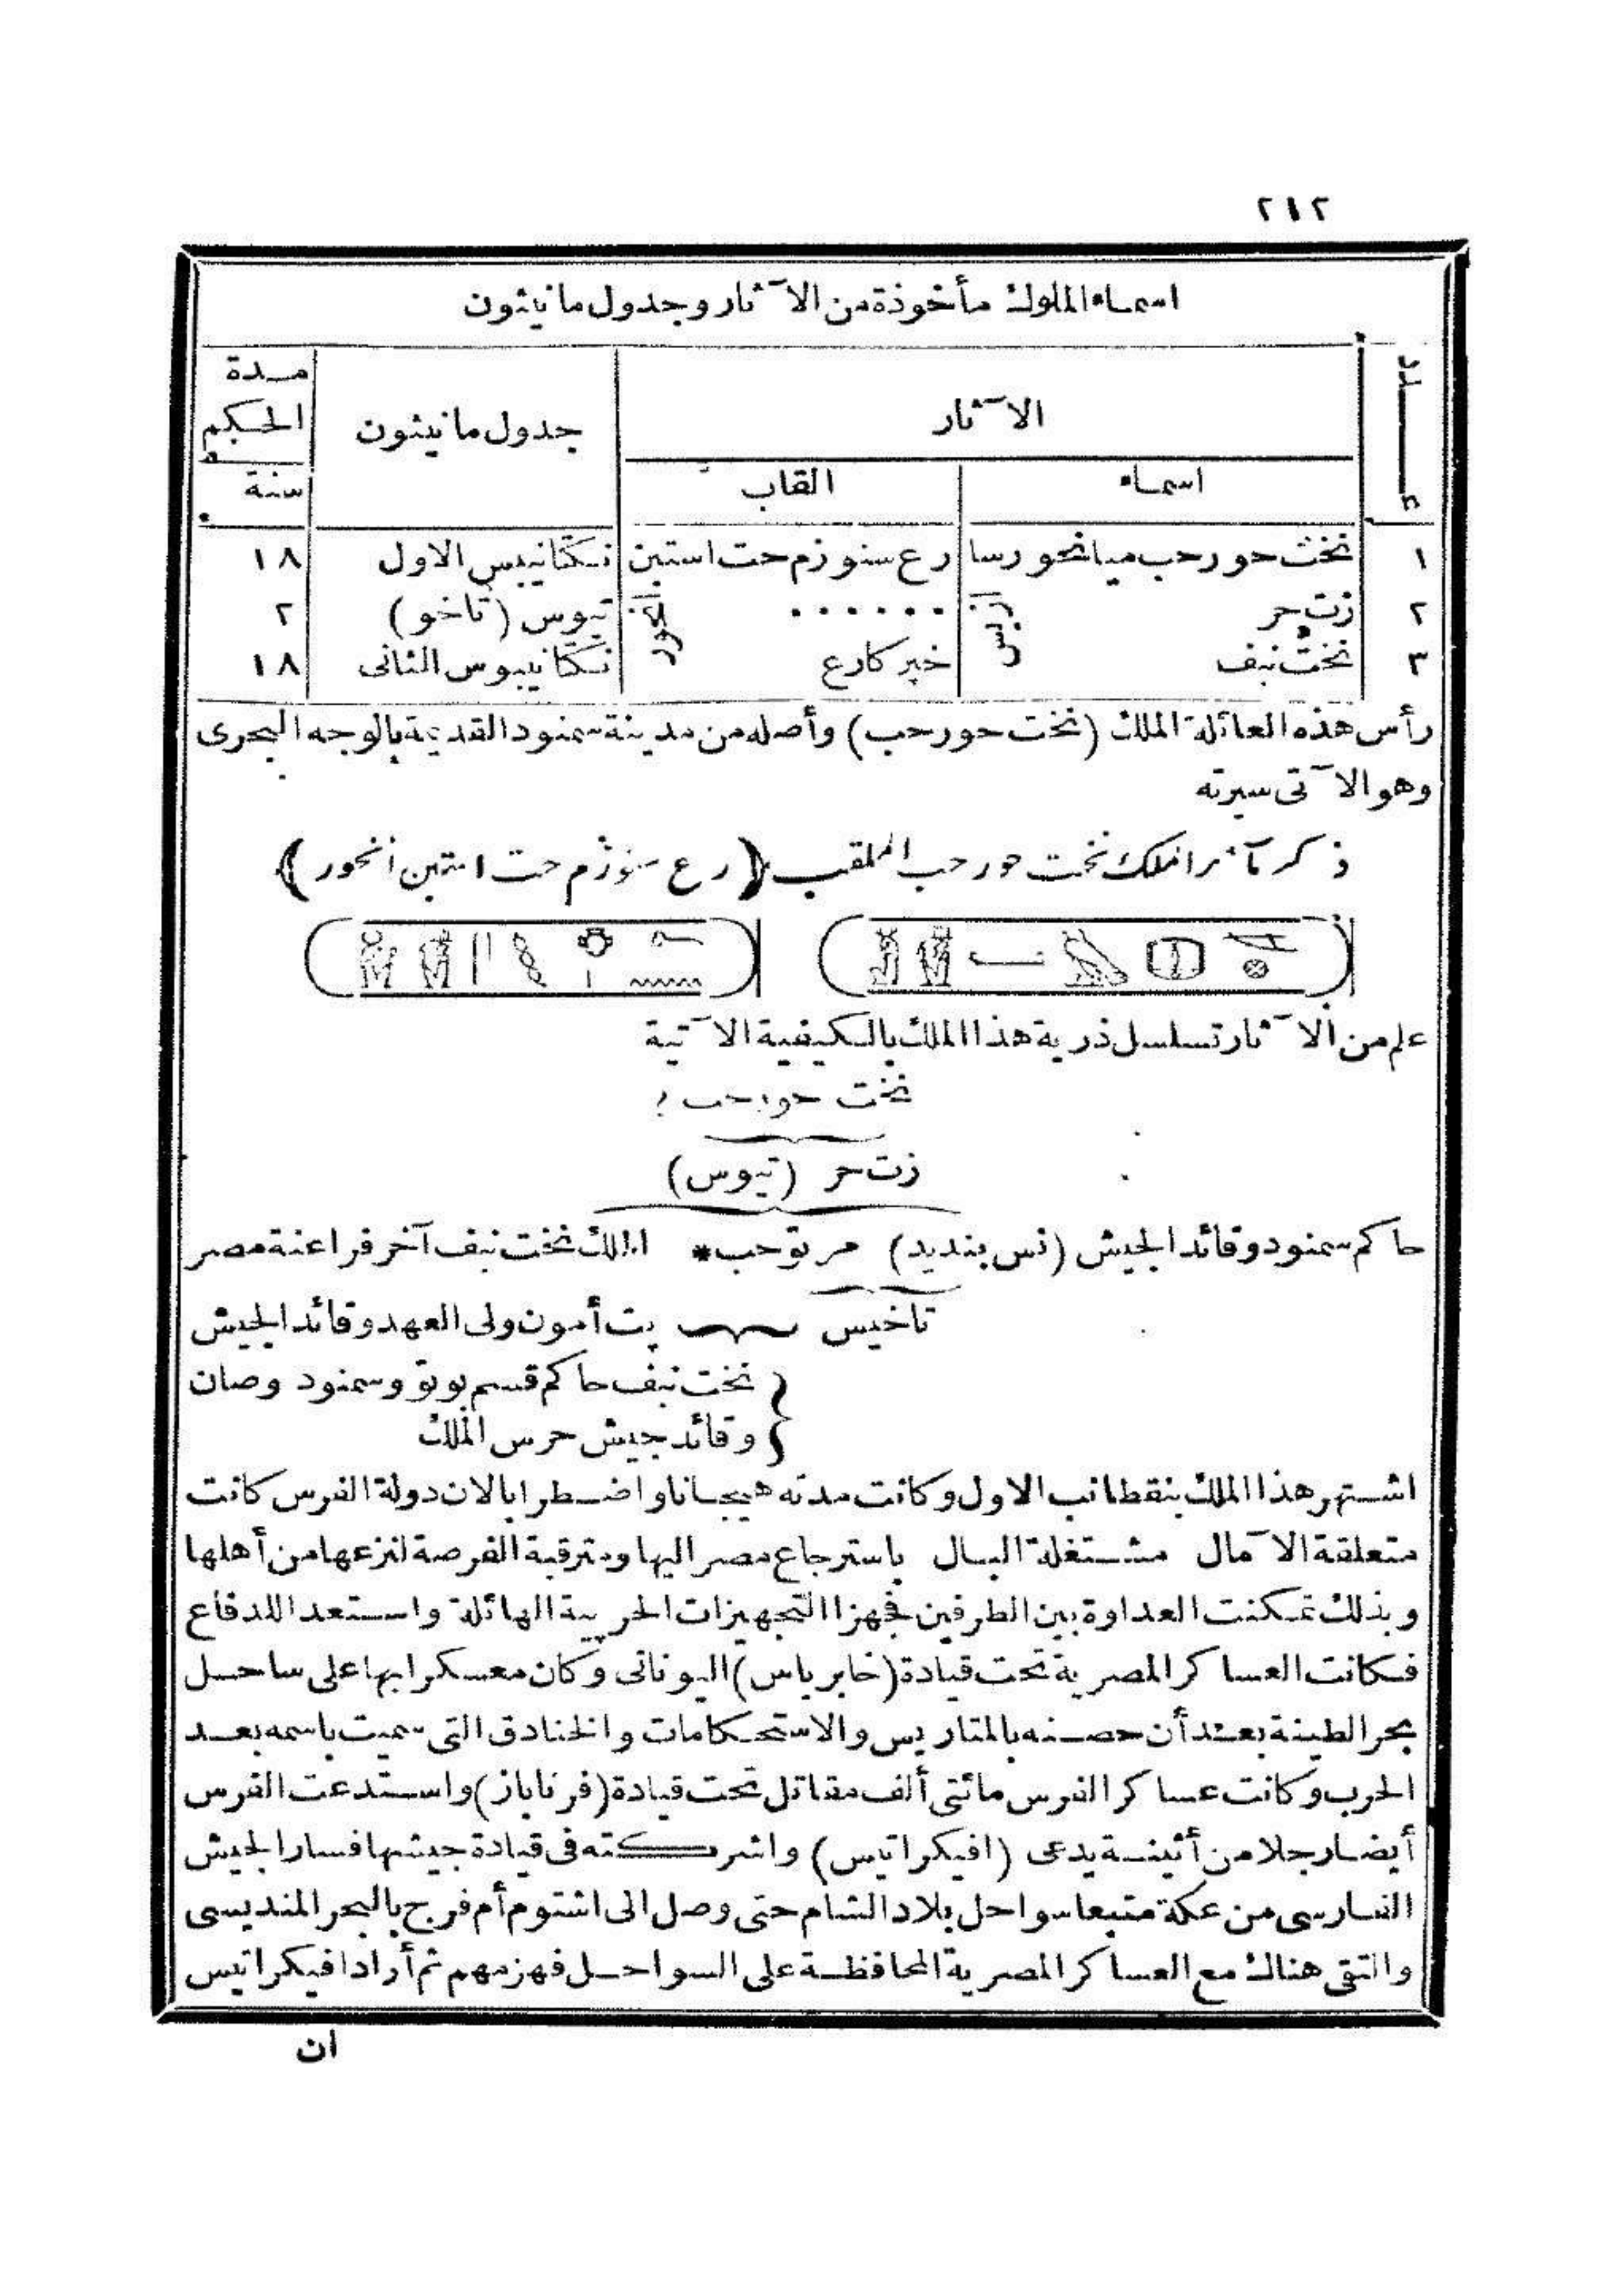 ٢١٢
اسماء الملوك مأخوذة من الآثار وجدول مانيثون
عدد
الآثار
جدول مانيثون
مدة الحكم
اسماء
القاب
سنة
١ نخت حورحب ميانحورسا رع سنوزم حت استبن نكتانيبس الاول ١٨
ازيس انحور
٢ زت حر ...... تيوس (تاخو) ٢
٣ نخت نبف خپر كارع نكتانيبوس الثانى ١٨
رأس هذه العائلة الملك (نخت حورحب) وأصله من مدينة سمنود القديمة بالوجه البحرى
وهو الآتى سيرته
ذكر مآثر الملك نخت حورحب الملقب (رع سنوزم حت استبن انحور)
علم من الآثار تسلسل ذرية هذا الملك بالكيفية الآتية
نخت حورحب ؟
زت حر (تيوس)
حاكم سمنود وقائد الجيش (نس بنديد) مرتوحب* الملك نخت نبف آخر فراعنة مصر
تاخيس پت أمون ولى العهد وقائد الجيش
نخت نبف حاكم قسم بوتو وسمنود وصان
وقائد جيش حرس الملك
اشتهر هذا الملك بنقطانب الاول وكانت مدته هيجانا واضطرابا لان دولة الفرس كانت
متعلقة الآمال مشتغلة البال باسترجاع مصر اليها ومترقبة الفرصة لنزعها من أهلها
وبذلك تمكنت العداوة بين الطرفين فجهزا التجهيزات الحربية الهائلة واستعدا للدفاع
فكانت العساكر المصرية تحت قيادة (خابرياس) اليونانى وكان معسكرا بها على ساحل
بحر الطينة بعد أن حصنه بالمتاريس والاستحكامات والخنادق التى سميت باسمه بعد
الحرب وكانت عساكر الفرس مائتى ألف مقاتل تحت قيادة (فرناباز) واستدعت الفرس
أيضا رجلا من أثينة يدعى (افيكراتيس) واشركته فى قيادة جيشها فسار الجيش
الفارسى من عكة متبعا سواحل بلاد الشام حتى وصل الى اشتوم أم فرج بالبحر المنديسى
والتقى هناك مع العساكر المصرية المحافظة على السواحل فهزمهم ثم أراد افيكراتيس
ان